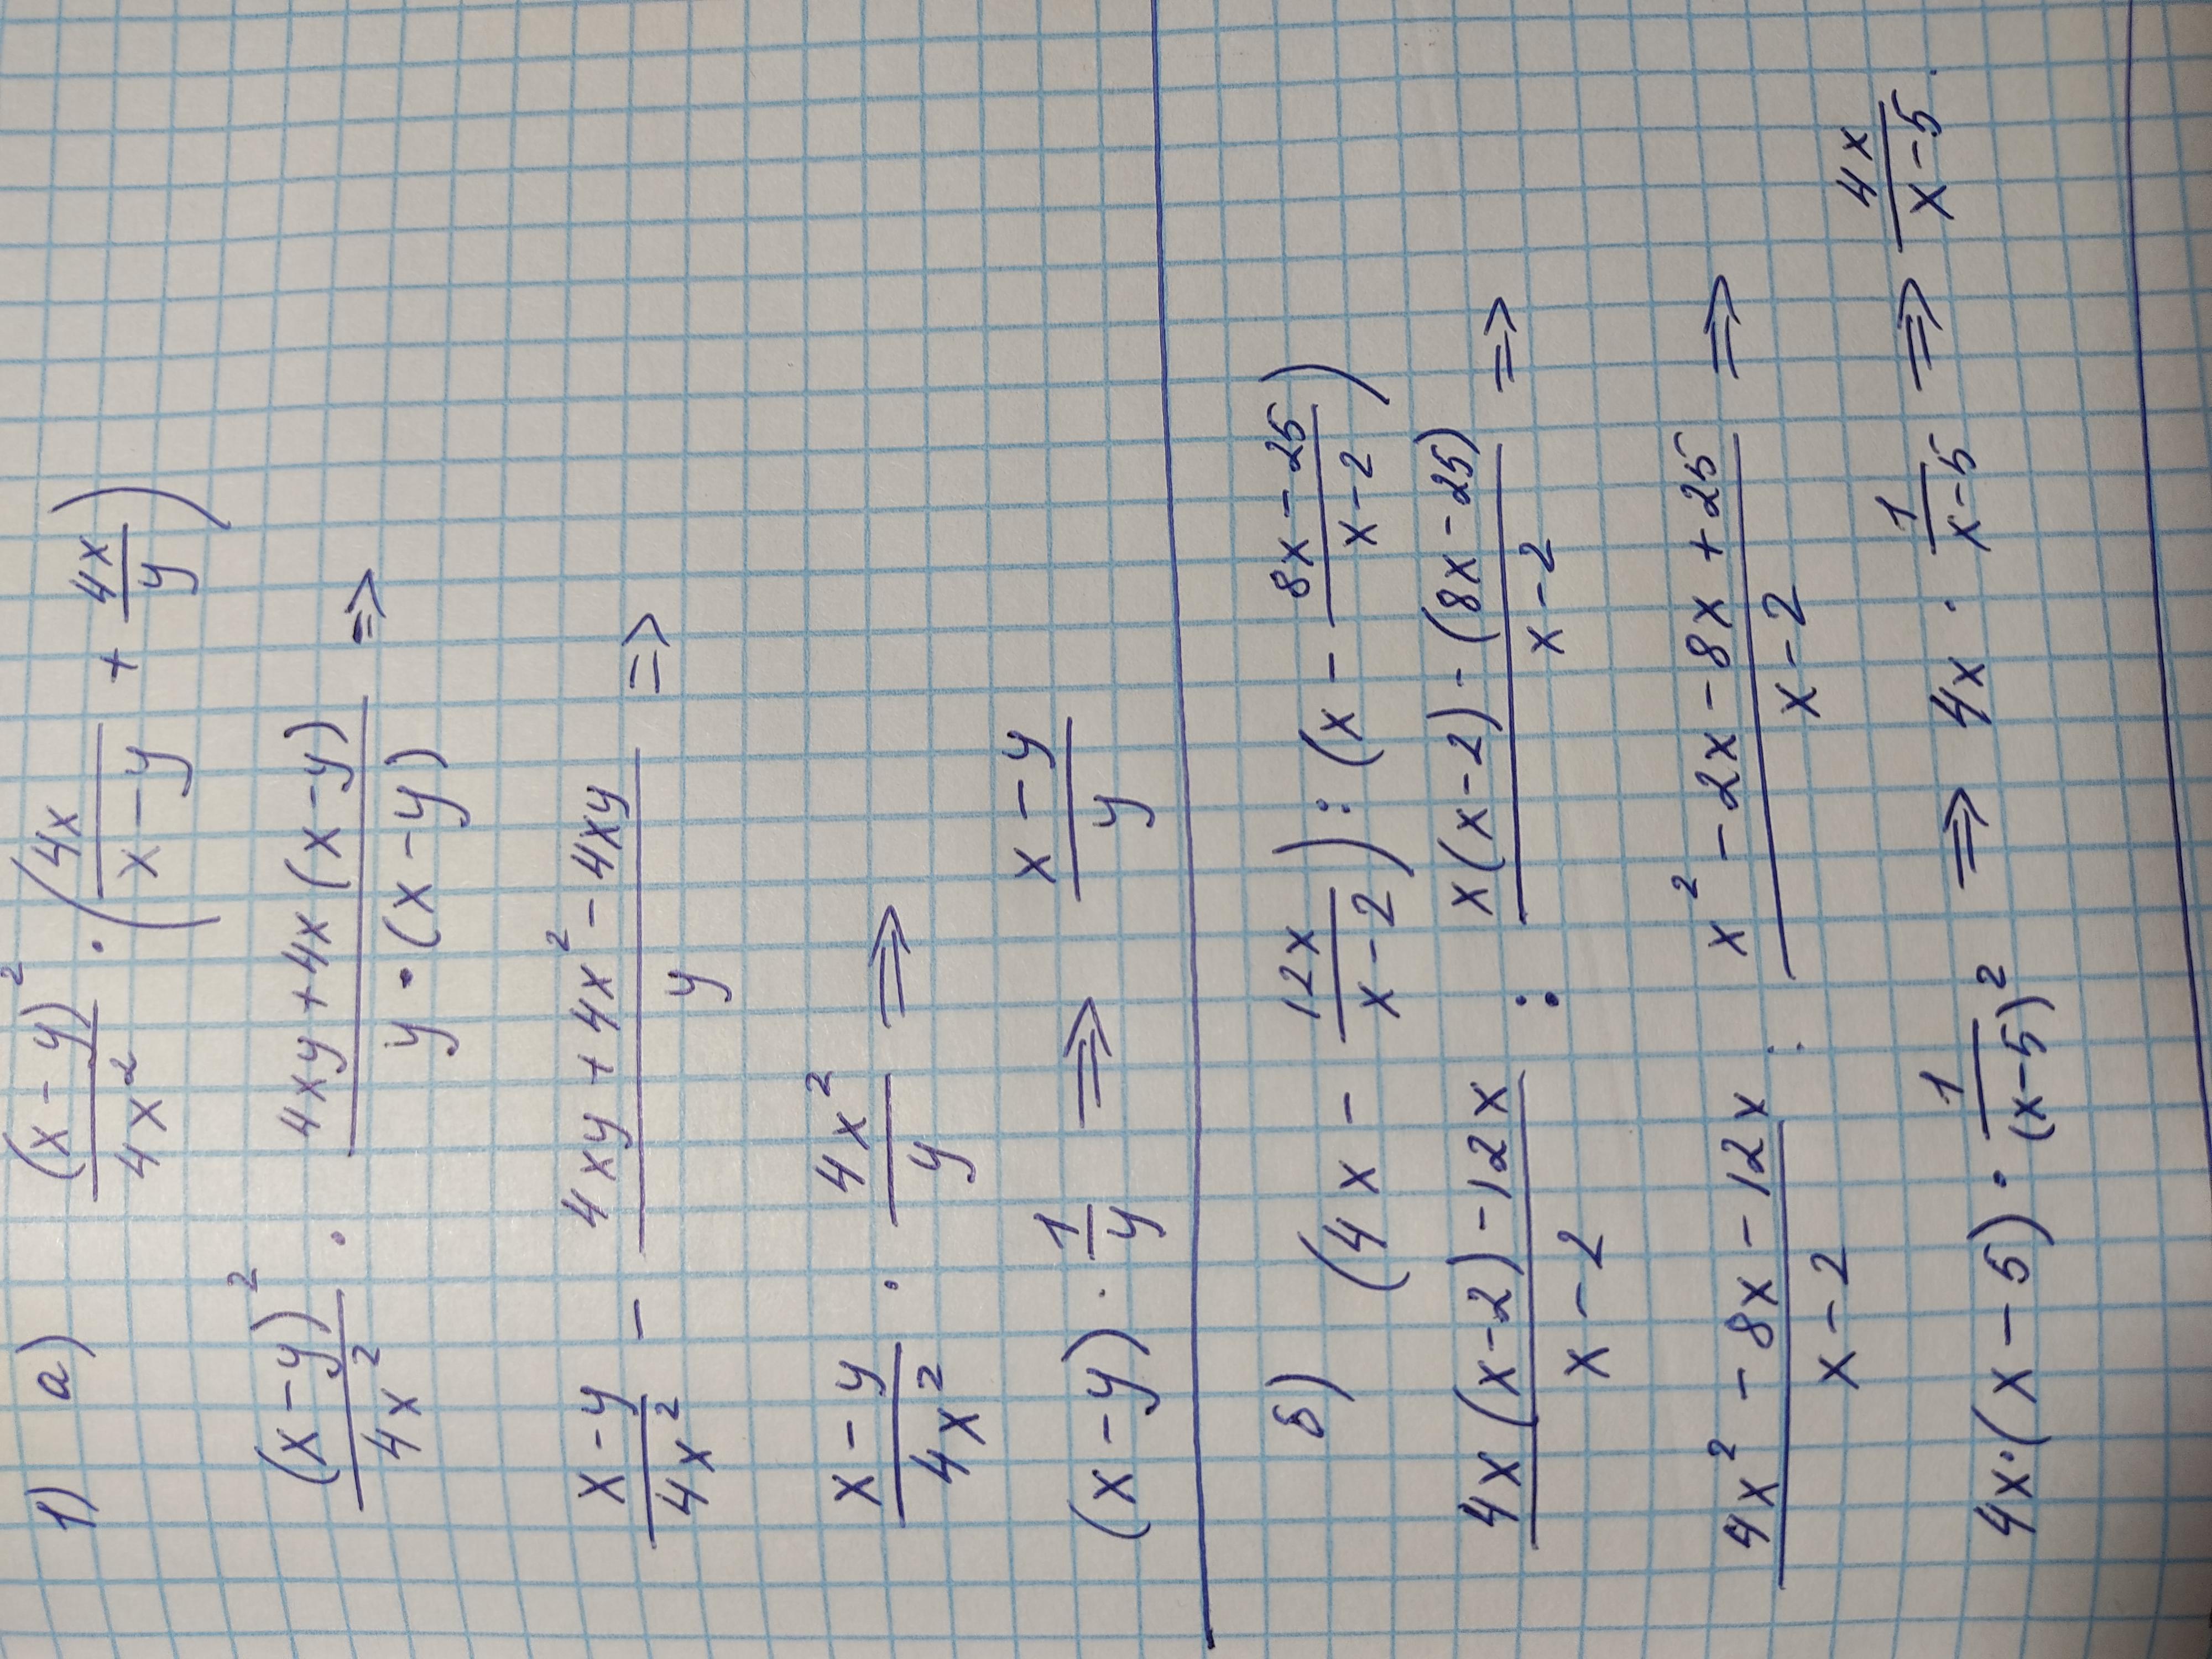 1) а) (x-y)²/4x² · (4x/x-y + 4x/y)
(x-y)²/4x² · 4xy+4x(x-y)/y·(x-y) =>
x-y/4x² - 4xy+4x²-4xy/y =>
x-y/4x² · 4x²/y =>
(x-y) · 1/y => x-y/y
б) (4x - 12x/x-2) : (x - 8x-25/x-2)
4x(x-2)-12x/x-2 : x(x-2)-(8x-25)/x-2 =>
4x²-8x-12x/x-2 : x²-2x-8x+25/x-2 =>
4x·(x-5) · 1/(x-5)² => 4x · 1/x-5 => 4x/x-5.